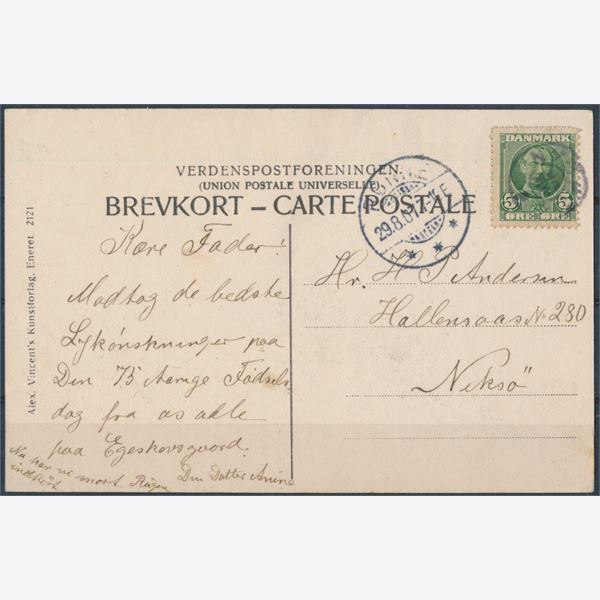 VERDENSPOSTFORENINGEN.
(UNION POSTALE UNIVERSELLE)
BREVKORT – CARTE POSTALE
RØNNE
29.8.07
DANMARK
5 5
ØRE ØRE
Alex. Vincent's Kunstforlag. Eneret 2121
Kære Fader!
Modtag de bedste
Lykønskninger paa
Den 75 Aarige Fødsels
dag fra os alle
paa Egeskovsgaard.
Din Datter Anine
Nu har vi snart Rugen
indkørt
Hr. H P Andersen
Hallensaas No 280
Neksö